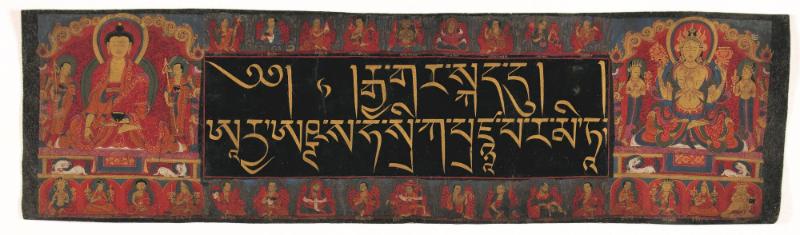 ༄༅། ། །རྒྱ་གར་སྐད་དུ། །
ཨཱརྱ་ཨཥྚ་ས་ཧ་སྲི་ཀ་པྲཛྙཱ་པ་ར་མི་ཏཱ་